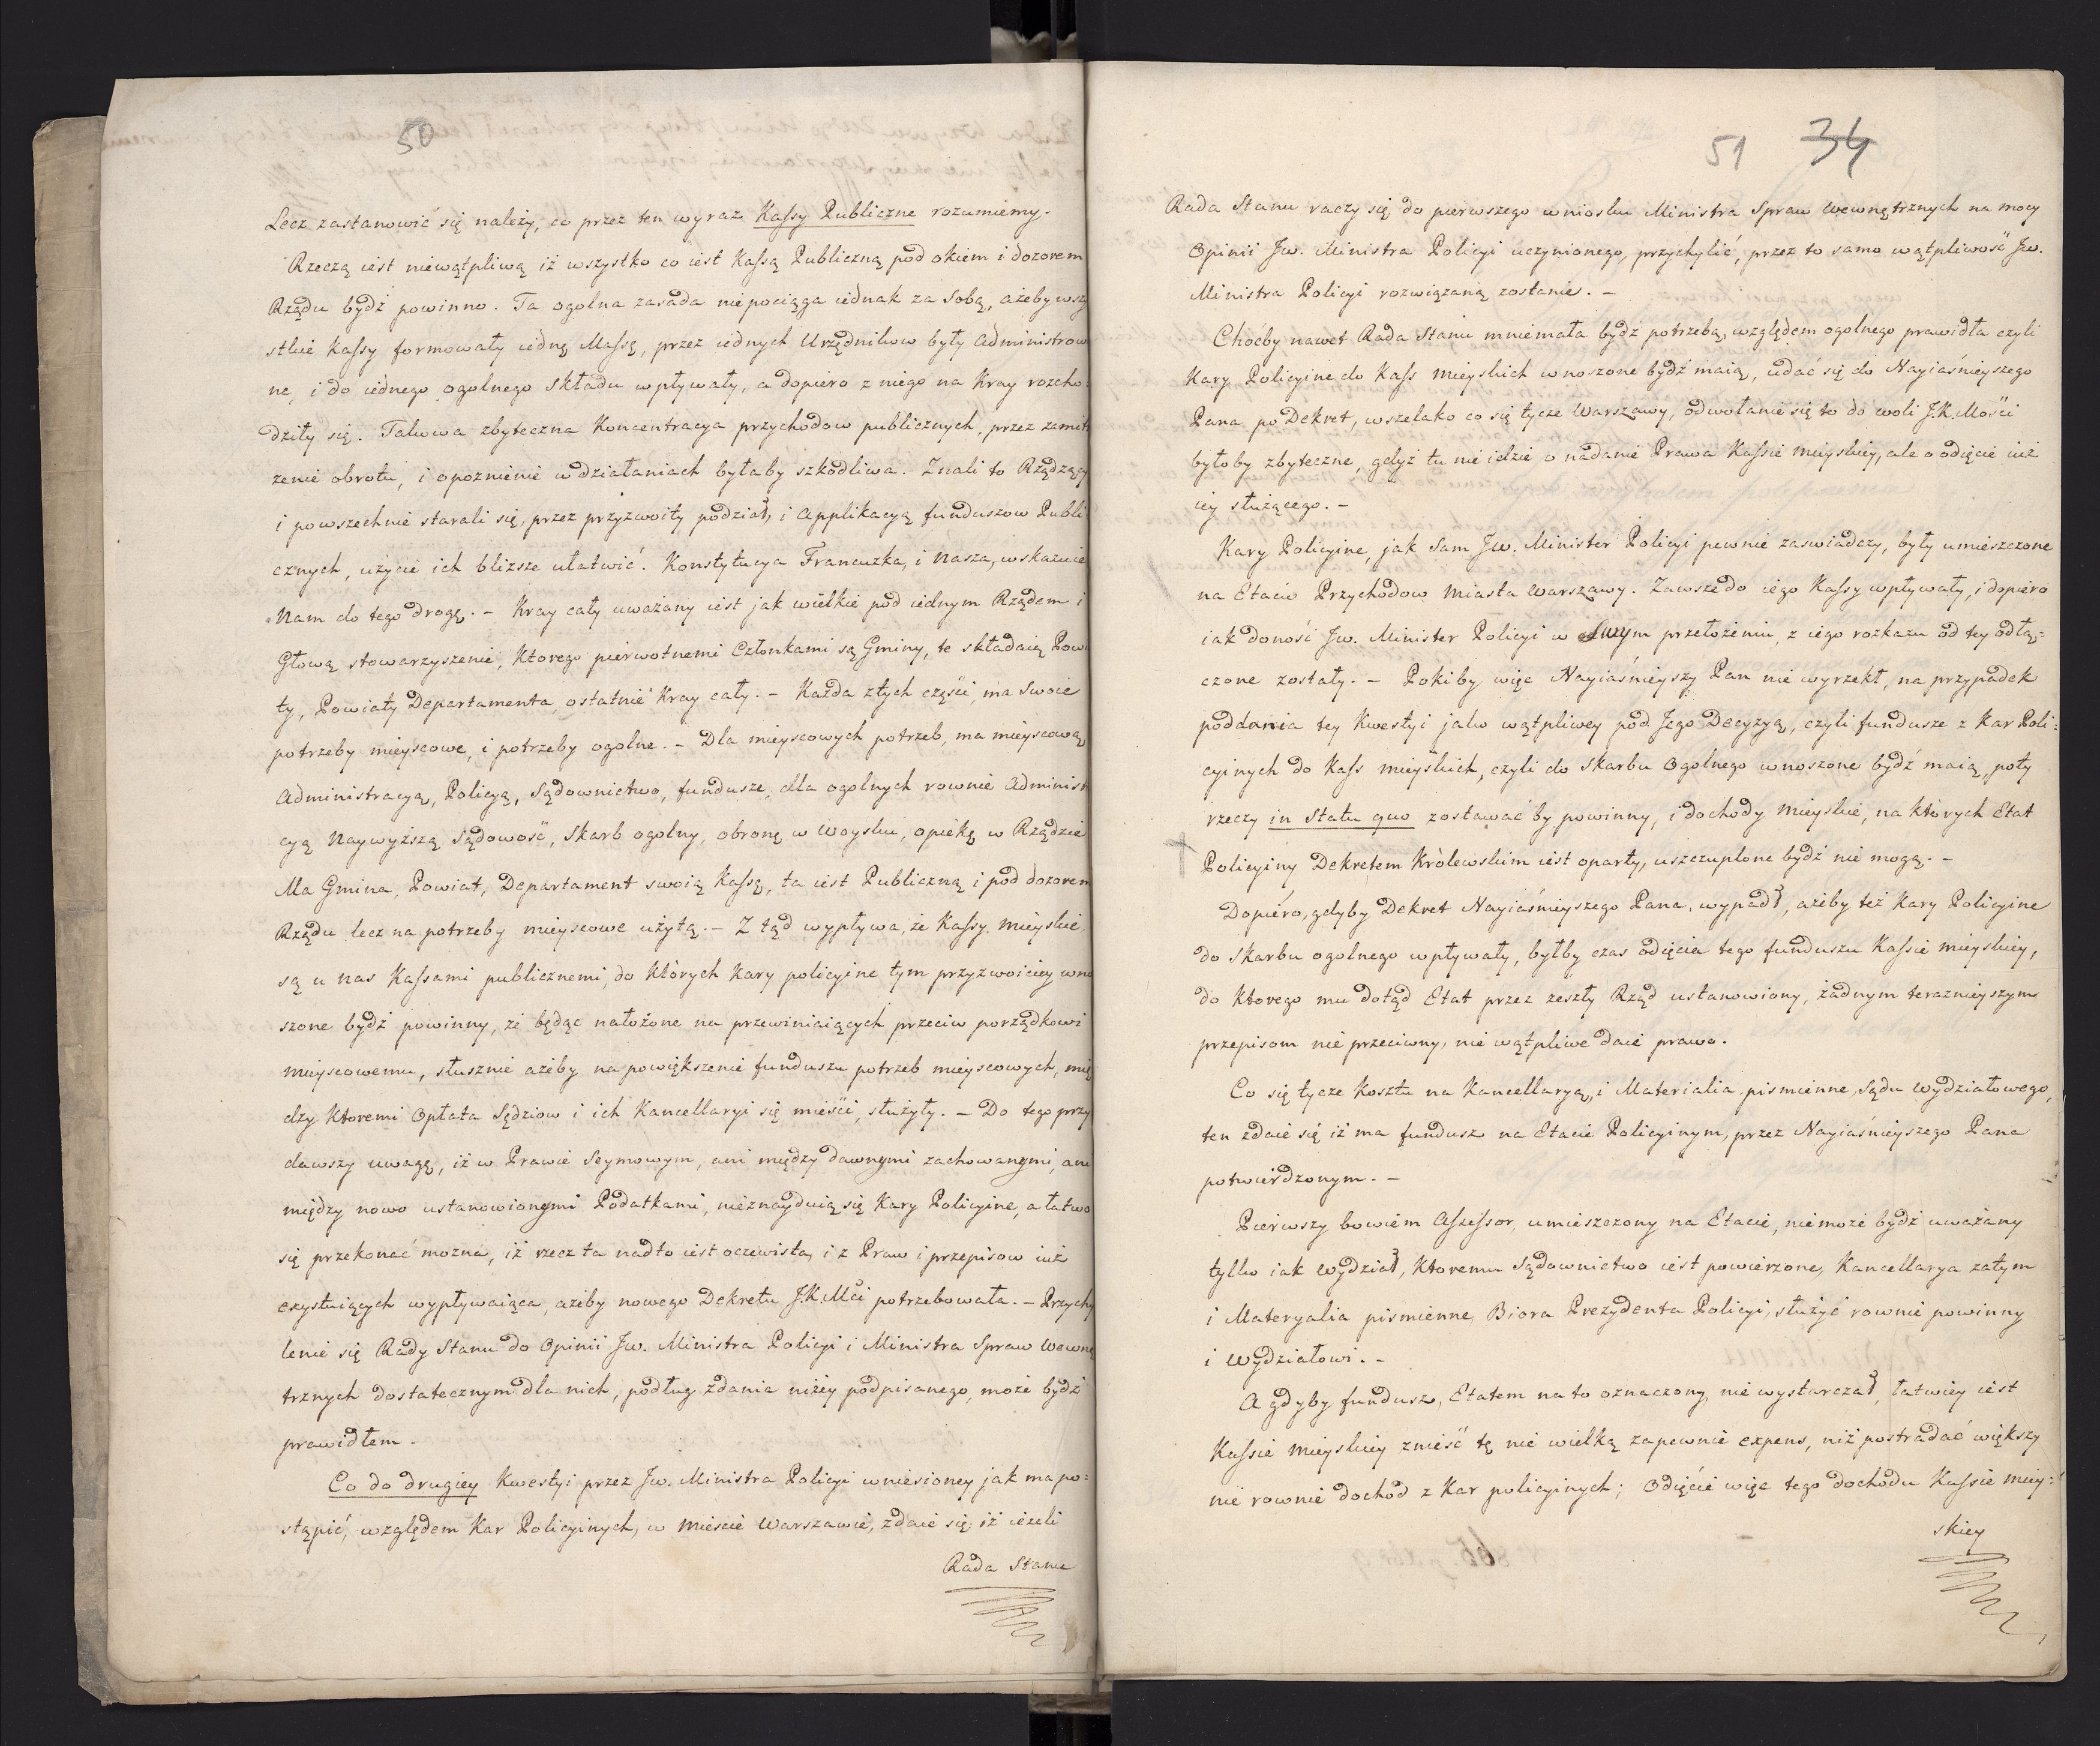 50
Lecz zastanowić się należy, co przez ten wyraz Kassy Publiczne rozumiemy.
Rzeczą iest niewątpliwą iż wszystko co iest Kassą Publiczną pod okiem i dozorem
Rządu bydź powinno. Ta ogolna zasada nie pociąga iednak za sobą, ażeby wszy
stkie Kassy formowały iednę Massę, przez iednych Urzędnikow były administrow
ne, i do iednego ogolnego składu wpływały, a dopiero z niego na Kray rozcho=
dziły się. Takowa zbyteczna Koncentracya przychodow publicznych, przez zamit
zenie obrotu, i opoznienie w działaniach byłaby szkodliwa. Znali to Rządzący
i powszechnie starali się, przez przyzwoity podział, i applikacyą funduszow Publi
cznych, użycie ich bliższe ułatwić. Konstytucya Francuzka, i Nasza, wskazuie
Nam do tego drogę. – Kray cały uważany iest jak wielkie pod iednym Rządem i
Głową stowarzyszenie, Ktorego pierwotnemi Członkami są Gminy, te składaią Pow
ty, Powiaty Departamenta, ostatnie Kray cały. – Każda z tych części, ma swoie
potrzeby mieyscowe, i potrzeby ogolne. – Dla mieyscowych potrzeb, ma mieyscową
Administracyą, Policyą, Sądownictwo, fundusze, dla ogolnych rownie Administ
cyą Naywyższą Sądowość, Skarb ogolny, obronę w Woysku, opiekę w Rządzie
Ma Gmina, Powiat, Departament swoią Kassą, ta iest Publiczną i pod dozorem
Rządu lecz na potrzeby mieyscowe użytą. – Z tąd wypływa, że Kassy mieyskie
są u nas Kassami publicznemi, do których Kary policyine tym przyzwoiciey wno
szone bydź powinny, że będąc nałożone na przewiniaiących przeciw porządkowi
mieyscowemu, słusznie ażeby na powiększenie funduszu potrzeb mieyscowych, mię
dzy Ktoremi Opłata Sędziow i ich Kancellaryi się mieści, służyły. – Do tego przy
dawszy uwagę, iż w Prawie Seymowym, ani między dawnymi zachowanymi, ani
między nowo ustanowionymi Podatkami, nieznayduią się Kary Policyine, a łatwo
się przekonać można, iż rzecz ta nadto iest oczewista, i z Praw i przepisow iuż
exystuiących wypływaiąca, ażeby nowego Dekretu J.K.Mci potrzebowała. – Przychy
lenie się Rady Stanu do Opinii Jw. Ministra Policyi i Ministra Spraw Wewnę
trznych dostatecznym dla nich, podług zdania niżey podpisanego, może bydź
prawidłem.
Co do drugiey Kwestyi przez Jw. Ministra Policyi wniesioney jak ma po=
stąpić, względem Kar Policyinych, w Mieście Warszawie, zdaie się iż ieżeli
Rada Stanu
51 34
Rada Stanu raczy się do pierwszego wniosku Ministra Spraw Wewnętrznych na mocy
Opinii Jw. Ministra Policyi uczynionego, przychylić, przez to samo wątpliwość Jw.
Ministra Policyi rozwiązaną zostanie. –
Choćby nawet Rada Stanu mniemała bydź potrzebą, względem ogolnego prawidła czyli
Kary Policyine do Kass mieyskich wnoszone bydź maią, udać się do Nayiaśnieyszego
Pana po Dekret, wszelako co się tycze Warszawy, odwołanie się to do woli J.K.Mości
byłoby zbyteczne, gdyż tu nie idzie o nadanie Prawa Kassie mieyskiey, ale o odięcie iuż
iey służącego. –
Kary Policyine, jak Sam Jw. Minister Policyi pewnie zaswiadczy, były umieszczone
na Etacie Przychodow Miasta Warszawy. Zawsze do iego Kassy wpływały, i dopiero
iak donosi Jw. Minister Policyi w swym przełożeniu, z iego rozkazu od tey odłą=
czone zostały. – Pokiby więc Nayiaśnieyszy Pan nie wyrzekł, na przypadek
poddania tey Kwestyi jako wątpliwey pod Jego Decyzyą, czyli fundusze z Kar Poli=
cyinych do Kass mieyskich, czyli do Skarbu Ogolnego wnoszone bydź maią, poty
rzeczy in Statu quo zostawać by powinny, i dochody mieyskie, na których Etat
Policyiny Dekretem Królewskim iest oparty, uszczuplone bydź nie mogą. –
Dopiero, gdyby Dekret Nayiaśnieyszego Pana, wypadł, ażeby też Kary Policyine
do Skarbu ogolnego wpływały, byłby czas odięcia tego funduszu Kassie mieyskiey,
do Ktorego mu dotąd Etat przez zeszły Rząd ustanowiony, żadnym teraznieyszym
przepisom nie przeciwny, nie wątpliwe daie prawo.
Co się tycze Kosztu na Kancellaryą, i Materialia pismienne, Sądu Wydziałowego,
ten zdaie się iż ma fundusz na Etacie Policyinym, przez Nayiaśnieyszego Pana
potwierdzonym. –
Pierwszy bowiem Assessor, umieszczony na Etacie, nie może bydź uważany
tylko iak Wydział, Ktoremu Sądownictwo iest powierzone, Kancellarya zatym
i Materyalia pismienne, Biora Prezydenta Policyi, służyć rownie powinny
i Wydziałowi. –
A gdyby fundusz, Etatem na to oznaczony, nie wystarczał, łatwiey iest
Kassie mieyskiey znieść tę nie wielką zapewnie expens, niż postradać większy
nie rownie dochod z Kar policyinych; Odięcie więc tego dochodu Kassie miey=
skiey